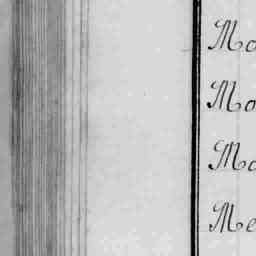 Mo
Mo
Mo
Me